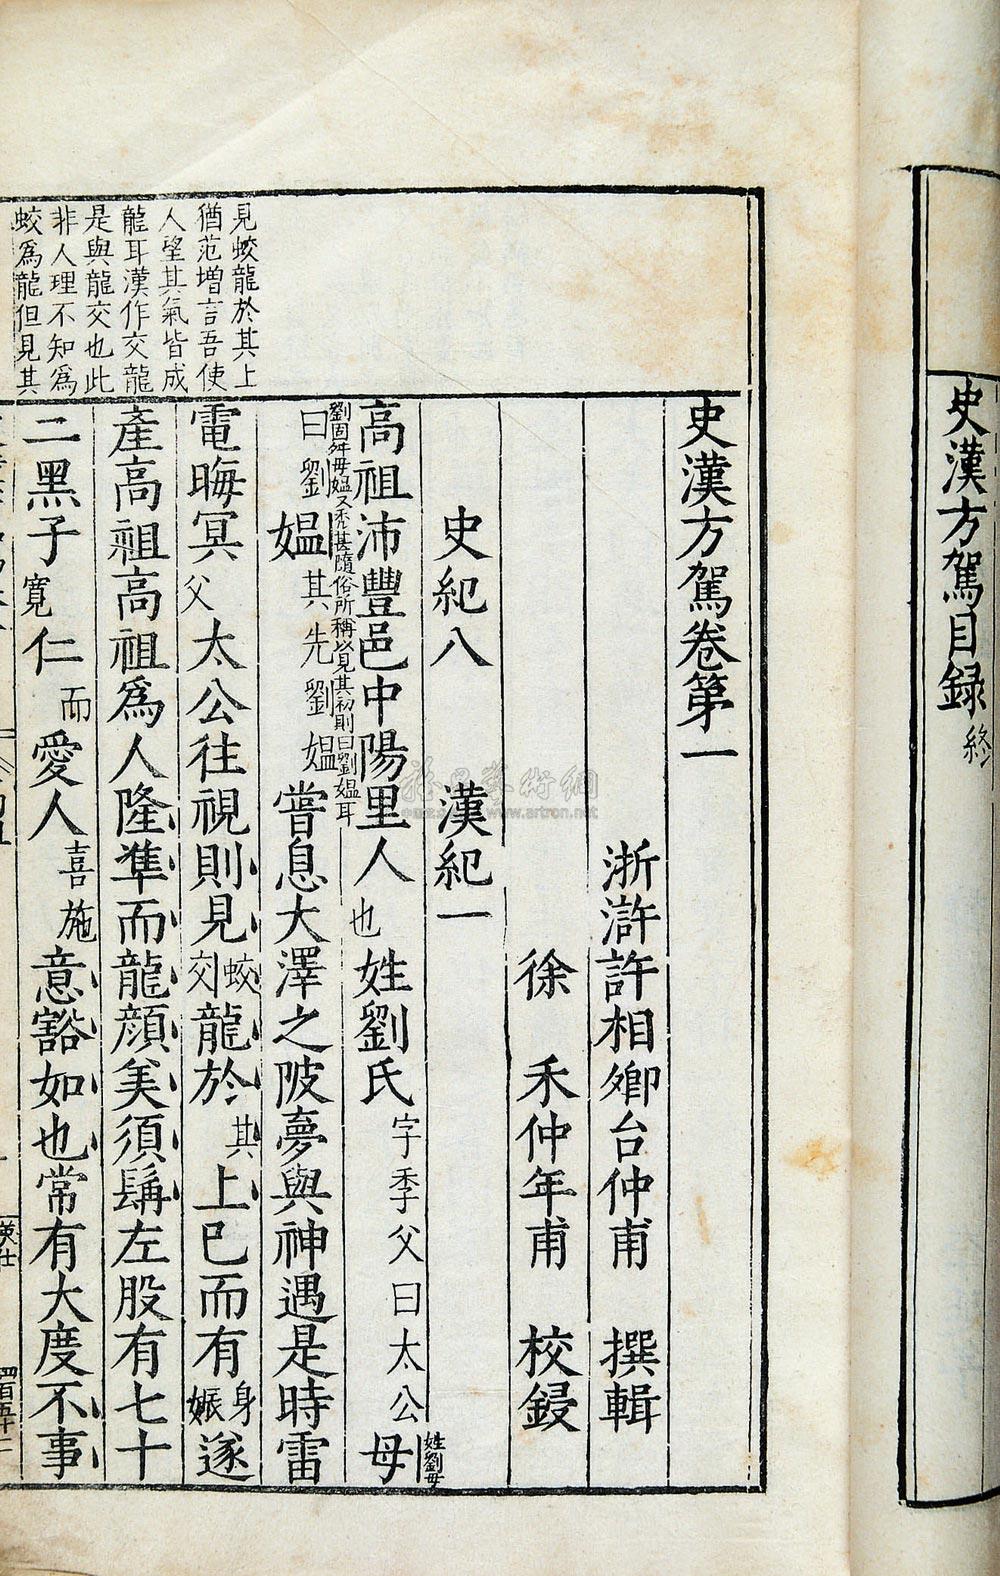 史漢方駕目録終
史漢方駕卷第一
浙滸許相卿台仲甫　撰輯
徐　禾仲年甫　校鋟
史紀八　漢紀一
高祖沛豐邑中陽里人也姓劉氏字季父曰太公母
媼其先劉媼嘗息大澤之陂夢與神遇是時雷
電晦冥父太公往視則見蛟交龍於其上已而有身娠遂
產高祖高祖爲人隆準而龍顏美須髯左股有七十
二黑子寬仁而愛人喜施意豁如也常有大度不事
見蛟龍於其上
猶范增言吾使
人望其氣皆成
龍耳漢作交龍
是與龍交也此
非人理不知爲
蛟爲龍但見其
姓劉母
曰劉
四百五十二